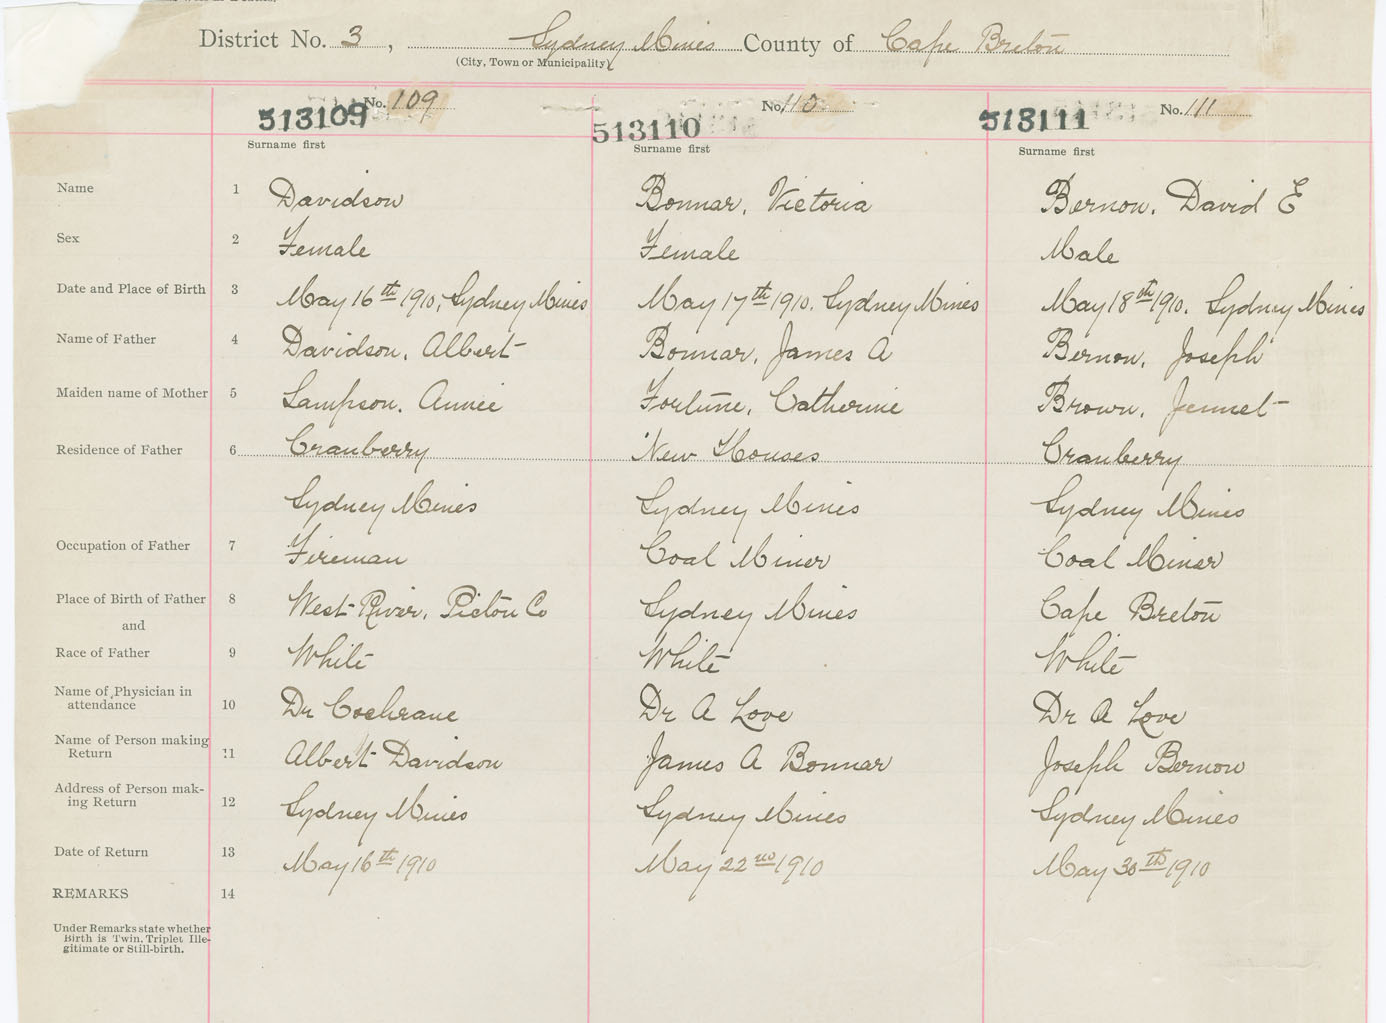 District No. 3, Sydney Mines County of Cape Breton
(City, Town or Municipality)
No. 109 No. 110 No. 111
513109 513110 513111
Surname first Surname first Surname first
Name 1 Davidson Bonnar, Victoria Bernon, David E
Sex 2 Female Female Male
Date and Place of Birth 3 May 16th 1910, Sydney Mines May 17th 1910. Sydney Mines May 18th 1910. Sydney Mines
Name of Father 4 Davidson, Albert Bonnar, James A Bernon, Joseph
Maiden name of Mother 5 Sampson, Annie Fortune, Catherine Brown, Jennet
Residence of Father 6 Cranberry New Houses Cranberry
Sydney Mines Sydney Mines Sydney Mines
Occupation of Father 7 Fireman Coal Miner Coal Miner
Place of Birth of Father 8 West River, Pictou Co Sydney Mines Cape Breton
and
Race of Father 9 White White White
Name of Physician in
attendance 10 Dr Cochrane Dr A Love Dr A Love
Name of Person making
Return 11 Albert Davidson James A Bonnar Joseph Bernon
Address of Person mak-
ing Return 12 Sydney Mines Sydney Mines Sydney Mines
Date of Return 13 May 16th 1910 May 22nd 1910 May 30th 1910
REMARKS 14
Under Remarks state whether
Birth is Twin, Triplet Ille-
gitimate or Still-birth.